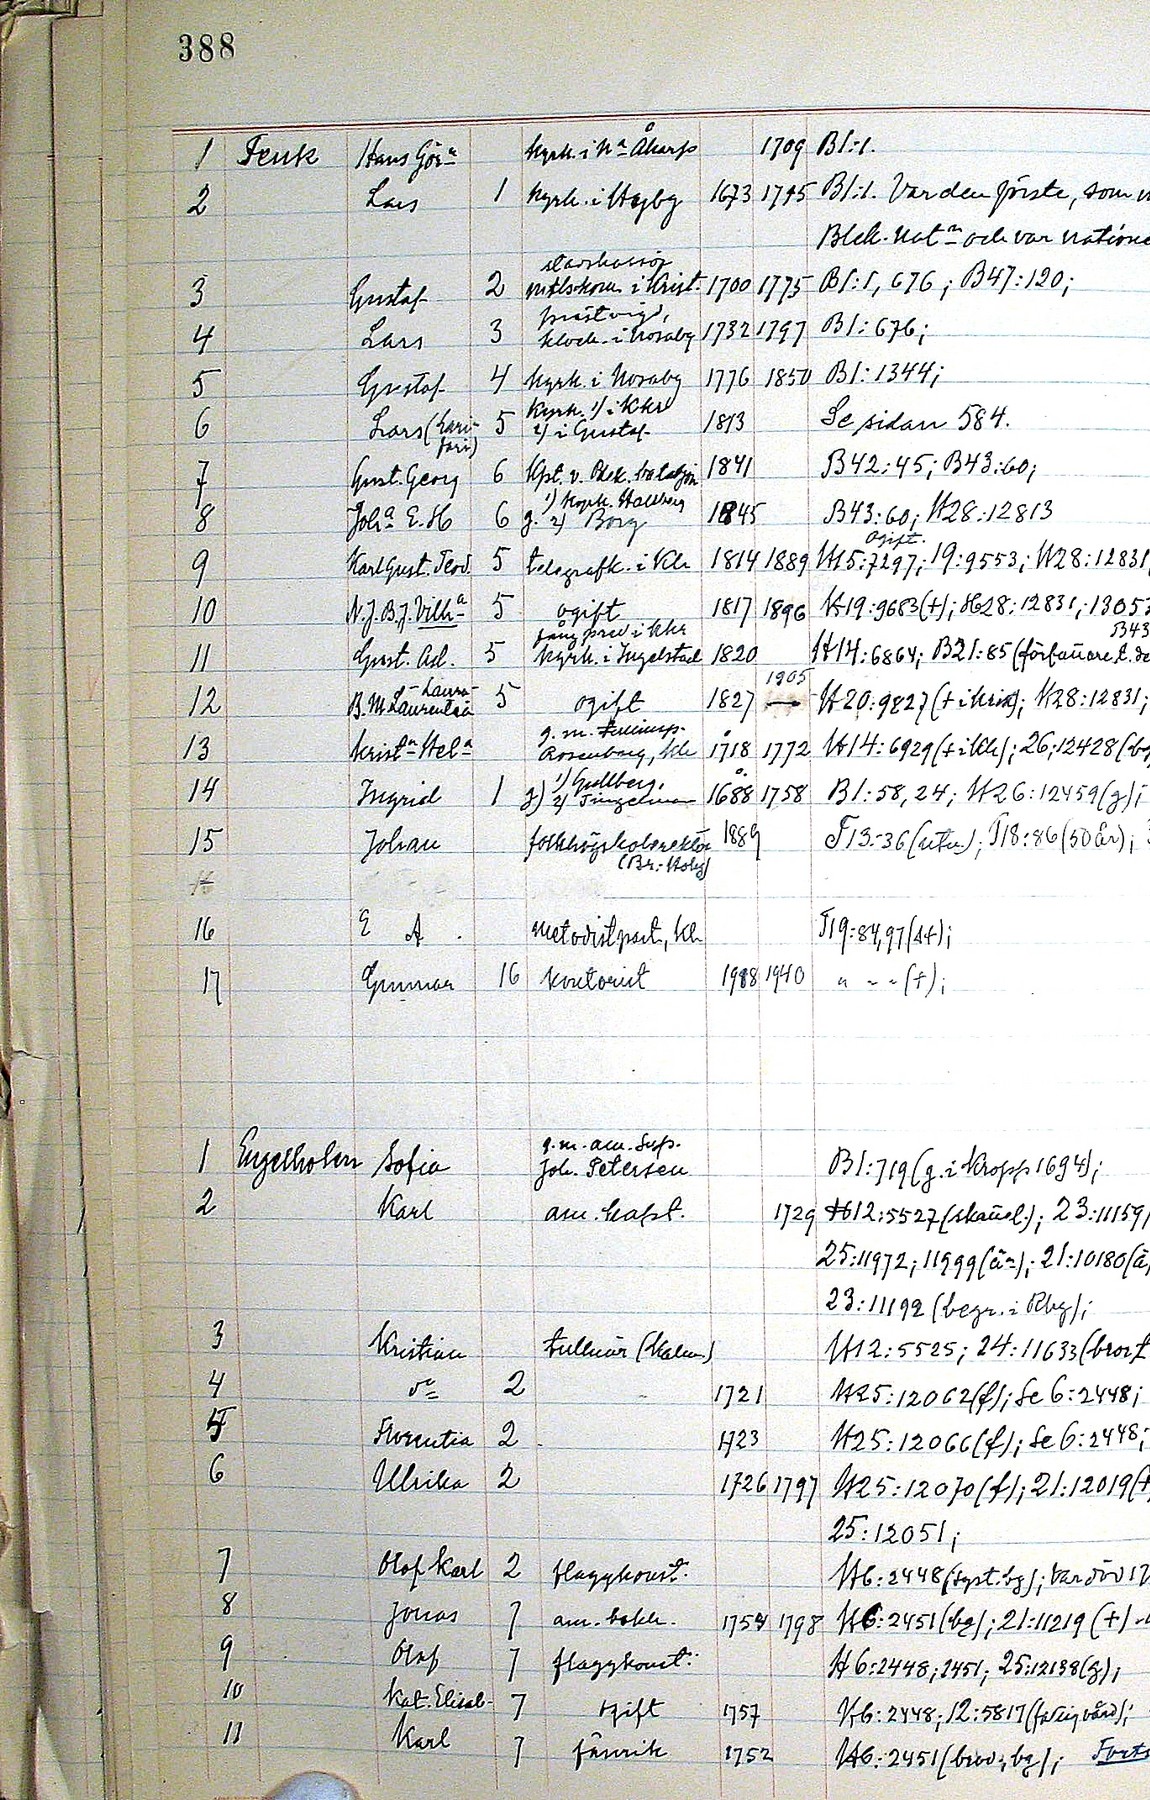 388
1 Fenk Hans Görⁿ kyrk. i Nᵃ Åkarp 1709 Bl:1.
2 Lars 1 kyrk. i Hejby 1673 1745 Bl:1. Var den förste, som
Blek. Natⁿ och var
3 Gustaf 2 i Krist. 1700 1775 Bl:1, 676; B47:120;
prästvigd,
4 Lars 3 klock. i Nosaby 1732 1797 Bl:676;
5 Gustaf 4 kyrk. i Nosaby 1776 1850 Bl:1344;
6 Lars 5 kyrk. 1) i Kkr 2) i Gustaf 1813 Se sidan 584.
7 Gust. Georg 6 Kpt. v. Blek. bataljon 1841 B42:45; B43:60;
8 Johᵃ E. H 6 g. 1) Kopk. Hallberg 2) Borg 1845 B43:60; H28:12813
ogift.
9 Karl Gust. Teod. 5 telegrafk. i Kkr 1814 1889 H15:7297; 19:9553; H28:12831
10 N. J. B. J. Vilhᵃ 5 ogift 1817 1896 H19:9683(†); H28:12831; 13053
B43
11 Gust. Ad. 5 fängpred i Kkr kyrk. i Ingelstad 1820 H14:6864; B21:85 (författare t. de
12 B. M. Laurentia -Laura- 5 ogift 1827 1905 H20:9827 († i Krist); H28:12831;
13 Kristⁿ Helᵃ g. m. Rosenborg, Kkr 1718 1772 H14:6929 († i Kkr); 26:12428 (bg
14 Ingrid 1 g) 1) Gullberg, 2) Tingelman 1688 1758 Bl:58, 24; H26:12459 (g);
15 Johan folkhögskolerektor (Br.-Hoby) 1889 T13:36 (utn.); T18:86 (50 år);
16 E A. metodistpast, Kkr T19:84, 97 (††);
17 Gunnar 16 kontorist 1908 1940 " - - (†);
1 Engelholm Sofia g. m. am. Sup. Joh. Petersen Bl:719 (g. i Kropp 1694);
2 Karl am. kapt. 1729 H12:5527 (skånel.); 23:11159
25:11972; 11999 (än); 21:10180 (ä
23:11192 (begr. i Rbg);
3 Kristian tullnär (Kalm) H12:5525; 24:11633 (brort
4 dº 2 1721 H25:12062 (f); Se 6:2448;
5 Florentia 2 1723 H25:12066 (f); Se 6:2448;
6 Ulrika 2 1726 1797 H25:12070 (f); 21:12019 (†
25:12051;
7 Olof Karl 2 flaggkonst. H6:2448 (syst. bg); Var död 17
8 Jonas 7 am. bokh. 1754 1798 H6:2451 (bg); 21:11219 (†)
9 Olof 7 flaggkonst. H6:2448; 2451; 25:12138 (g);
10 Kat. Elisab. 7 ogift 1757 H6:2448; 12:5817 (fattigvård);
11 Karl 7 fänrik 1752 H6:2451 (brod; bg); Forts